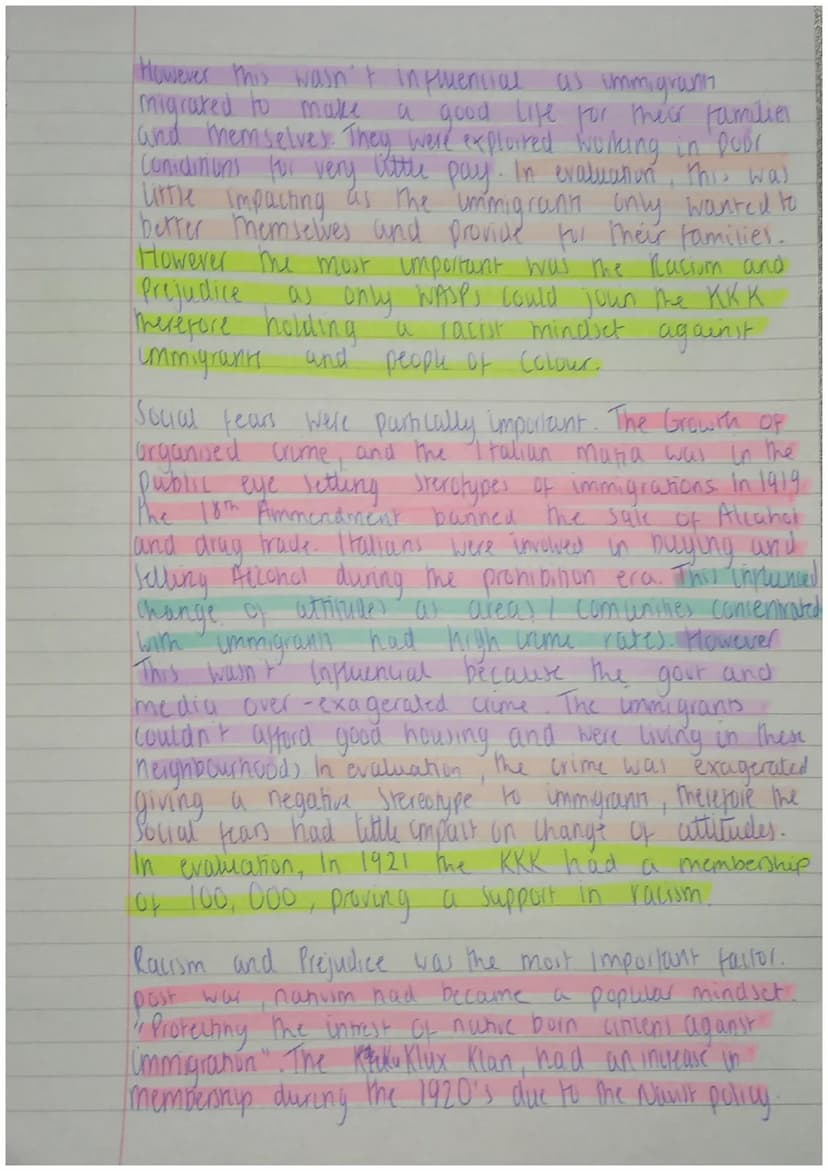 However this wasn't influencial as immigrants
migrated to make a good life for their families
and themselves. They were exploited working in poor
conidinions for very little pay. In evaluation, this was
little impacting as the immigrants only wanted to
better themselves and provide for their families.
However the most important was the Racism and
Prejudice as only WASPs could join the KKK
therefore holding a racist mindset against
immigrants and people of colour.
Social fears were partically important. The Growth of
organised crime, and the Italian mafia was in the
public eye setting sterotypes of immigrations in 1919
the 18th Ammendment banned the sale of Alcahol
and drug trade. Italians were involved in buying and
selling Alcohol during the prohibition era. This influenced
change of attitudes as areas/ comunities concentrated
with immigrants had high crime rates. However
This wasn't influencial because the gour and
media over-exagerated crime. The immigrants
couldn't afford good housing and were living in these
neighbourhoods In evaluation, the crime was exagerated
giving a negative stereotype to immigrants, therefore the
social fears had little impact on change of attitudes.
In evaluation, In 1921 the KKK had a membership
of 100,000, proving a support in racism.
Racism and Prejudice was the most important factor.
post war, nativism had became a popular mindset.
"Protecting the intrest of native born citizens against
immigration". The Klux Klan, had an increase in
membership during the 1920's due to the Nativist policy.